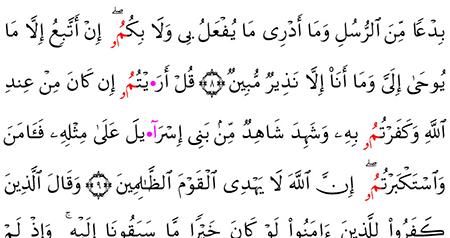 بِدْعًا مِّنَ ٱلرُّسُلِ وَمَا أَدْرِى مَا يُفْعَلُ بِى وَلَا بِكُمُۥٓ ۖ إِنْ أَتَّبِعُ إِلَّا مَا
يُوحَىٰ إِلَىَّ وَمَا أَنَا۠ إِلَّا نَذِيرٌ مُّبِينٌ ۝٨ قُلْ أَرَ•يْتُمُۥٓ إِن كَانَ مِنْ عِندِ
ٱللَّهِ وَكَفَرْتُمُۥ بِهِۦ وَشَهِدَ شَاهِدٌ مِّنۢ بَنِى إِسْرَآ•يلَ عَلَىٰ مِثْلِهِۦ فَـَٔامَنَ
وَٱسْتَكْبَرْتُمُۥٓ ۖ إِنَّ ٱللَّهَ لَا يَهْدِى ٱلْقَوْمَ ٱلظَّـٰلِمِينَ ۝٩ وَقَالَ ٱلَّذِينَ
كَفَرُوا۟ لِلَّذِينَ ءَامَنُوا۟ لَوْ كَانَ خَيْرًا مَّا سَبَقُونَا إِلَيْهِ ۚ وَإِذْ لَمْ